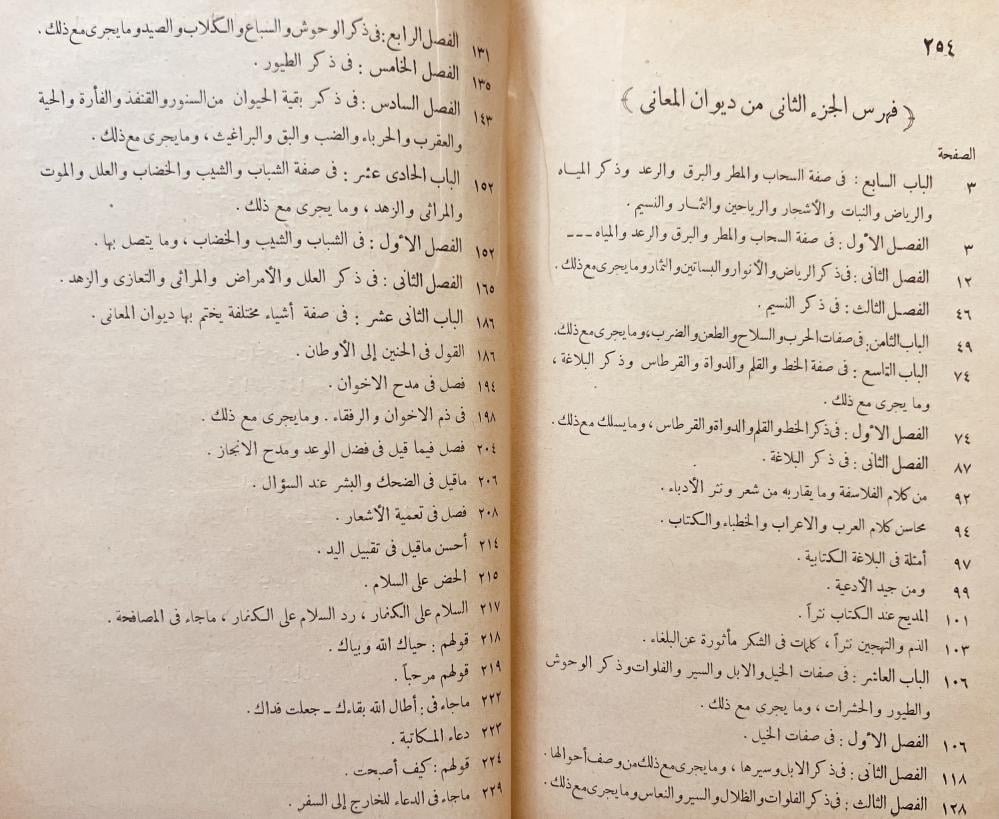 ٢٥٤
﴿ فهرس الجزء الثانى من ديوان المعانى ﴾
الصفحة
٣ الباب السابع : فى صفة السحاب والمطر والبرق والرعد وذكر المياه
والرياض والنبات والأشجار والرياحين والثمار والنسيم .
٣ الفصل الأول : فى صفة السحاب والمطر والبرق والرعد والمياه ـ ـ ـ
١٢ الفصل الثانى : فى ذكر الرياض والأنوار والبساتين والثمار وما يجرى مع ذلك .
٤٦ الفصل الثالث : فى ذكر النسيم .
٤٩ الباب الثامن : فى صفات الحرب والسلاح والطعن والضرب ، وما يجرى مع ذلك .
٧٤ الباب التاسع : فى صفة الخط والقلم والدواة والقرطاس وذكر البلاغة ،
وما يجرى مع ذلك .
٧٤ الفصل الأول : فى ذكر الخط والقلم والدواة والقرطاس ، وما يسلك مع ذلك .
٨٧ الفصل الثانى : فى ذكر البلاغة .
٩٢ من كلام الفلاسفة وما يقاربه من شعر ونثر الأدباء .
٩٤ محاسن كلام العرب والاعراب والخطباء والكتاب .
٩٧ أمثلة فى البلاغة الكتابية .
٩٩ ومن جيد الأدعية .
١٠١ المديح عند الكتاب نثراً .
١٠٣ الذم والتهجين نثراً ، كلمات فى الشكر مأثورة عن البلغاء .
١٠٦ الباب العاشر : فى صفات الخيل والابل والسير والفلوات وذكر الوحوش
والطيور والحشرات ، وما يجرى مع ذلك .
١٠٦ الفصل الأول : فى صفات الخيل .
١١٨ الفصل الثانى : فى ذكر الابل وسيرها ، وما يجرى مع ذلك من وصف أحوالها .
١٢٨ الفصل الثالث : فى ذكر الفلوات والظلال والسير والنعاس وما يجرى مع ذلك .
١٣١ الفصل الرابع : فى ذكر الوحوش والسباع والكلاب والصيد وما يجرى مع ذلك .
١٣٥ الفصل الخامس : فى ذكر الطيور .
١٤٣ الفصل السادس : فى ذكر بقية الحيوان من السنور والقنفذ والفأرة والحية
والعقرب والحرباء والضب والبق والبراغيث ، وما يجرى مع ذلك .
١٥٢ الباب الحادى عشر : فى صفة الشباب والشيب والخضاب والعلل والموت
والمراثى والزهد ، وما يجرى مع ذلك .
١٥٢ الفصل الأول : فى الشباب والشيب والخضاب ، وما يتصل بها .
١٦٥ الفصل الثانى : فى ذكر العلل والأمراض والمراثى والتعازى والزهد .
١٨٦ الباب الثانى عشر : فى صفة أشياء مختلفة يختم بها ديوان المعانى .
١٨٦ القول فى الحنين إلى الأوطان .
١٩٤ فصل فى مدح الاخوان .
١٩٨ فى ذم الاخوان والرفقاء . وما يجرى مع ذلك .
٢٠٤ فصل فيما قيل فى فضل الوعد ومدح الانجاز .
٢٠٦ ماقيل فى الضحك والبشر عند السؤال .
٢٠٨ فصل فى تعمية الأشعار .
٢١٤ أحسن ماقيل فى تقبيل اليد .
٢١٥ الحض على السلام .
٢١٧ السلام على الكفار ، رد السلام على الكفار ، ماجاء فى المصافحة .
٢١٨ قولهم : حياك الله وبياك .
٢١٩ قولهم مرحباً .
٢٢٢ ماجاء فى : أطال الله بقاءك ـ جعلت فداك .
٢٢٣ دعاء المكاتبة .
٢٢٤ قولهم : كيف أصبحت .
٢٢٩ ماجاء فى الدعاء للخارج إلى السفر .